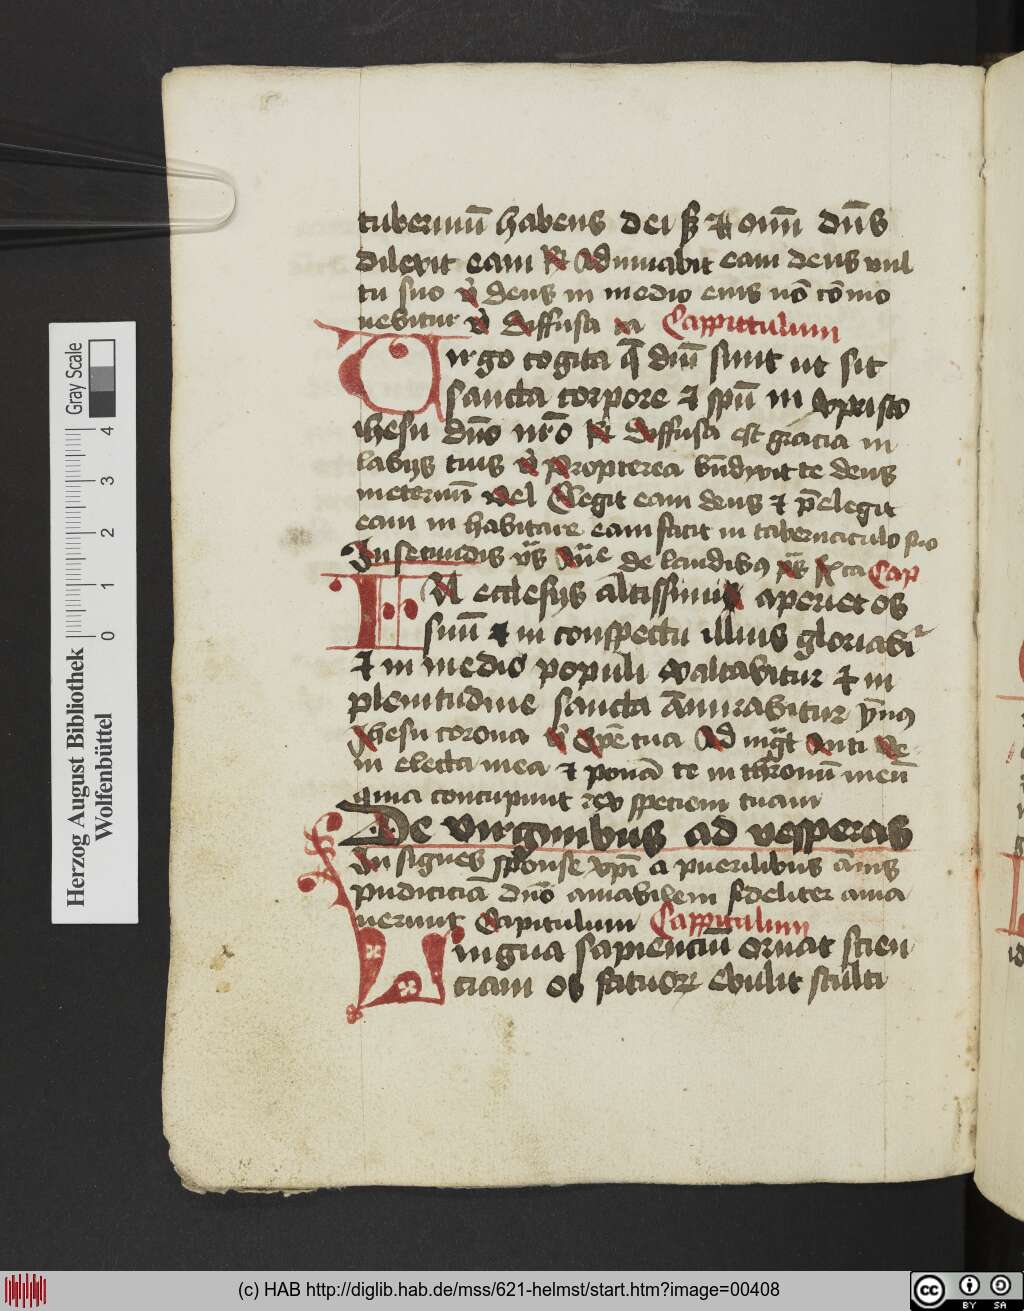 tubernnū habens dei sp̄ ⁊ omī dn̄s
dilexit eam R Adiuuabit eam deus uul
tu suo v̓ deus in medio eius nō cōmo
uebitur v̓ Diffusa xa Cappittulum
Virgo cogita q̄ dn̄i sunt ut sit
sancta corpore ⁊ spū in xpristo
ihesu dn̄o nr̄o R Diffusa est gracia in
labijs tuis v̓ Propterea bn̄dixit te deus
in eternū v̓el Elegit eam deus ⁊ p̄elegit
eam in habitare eam facit in tabernaculo suo
In secundis de laudibꝫ Cap
IN ecclesijs altissimis aperiet os
suū ⁊ in conspectu illius gloriabit᷑
⁊ in medio populi exaltabitur ⁊ in
plenitudine sancta Amirabitur ym̄nꝫ
Ihesu corona v̓ Spē tua Ad mg̅t Anti Ve
ni electa mea ⁊ ponā te in thronū meū
quia concupiuit rex speciem tuam
De virginibus ad vesperas
In signes sponse xp̄i a puerilibus ānis
pudiciciā dn̄o amabilem fideliter ama
uerunt Capitulum Cappitulum
Lingua sapienciū ornat scien
ciam os fatuoꝝ ebulit stulti
Herzog August Bibliothek
Wolfenbüttel
0 1 2 3 4
Gray Scale
(c) HAB http://diglib.hab.de/mss/621-helmst/start.htm?image=00408
cc BY SA